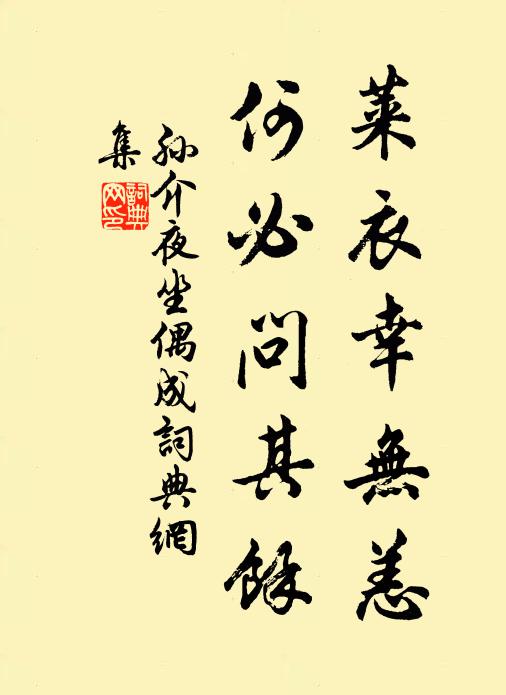 萊衣幸無恙
何必問其餘
孫介夜坐偶成詞典網
集
詞典網印